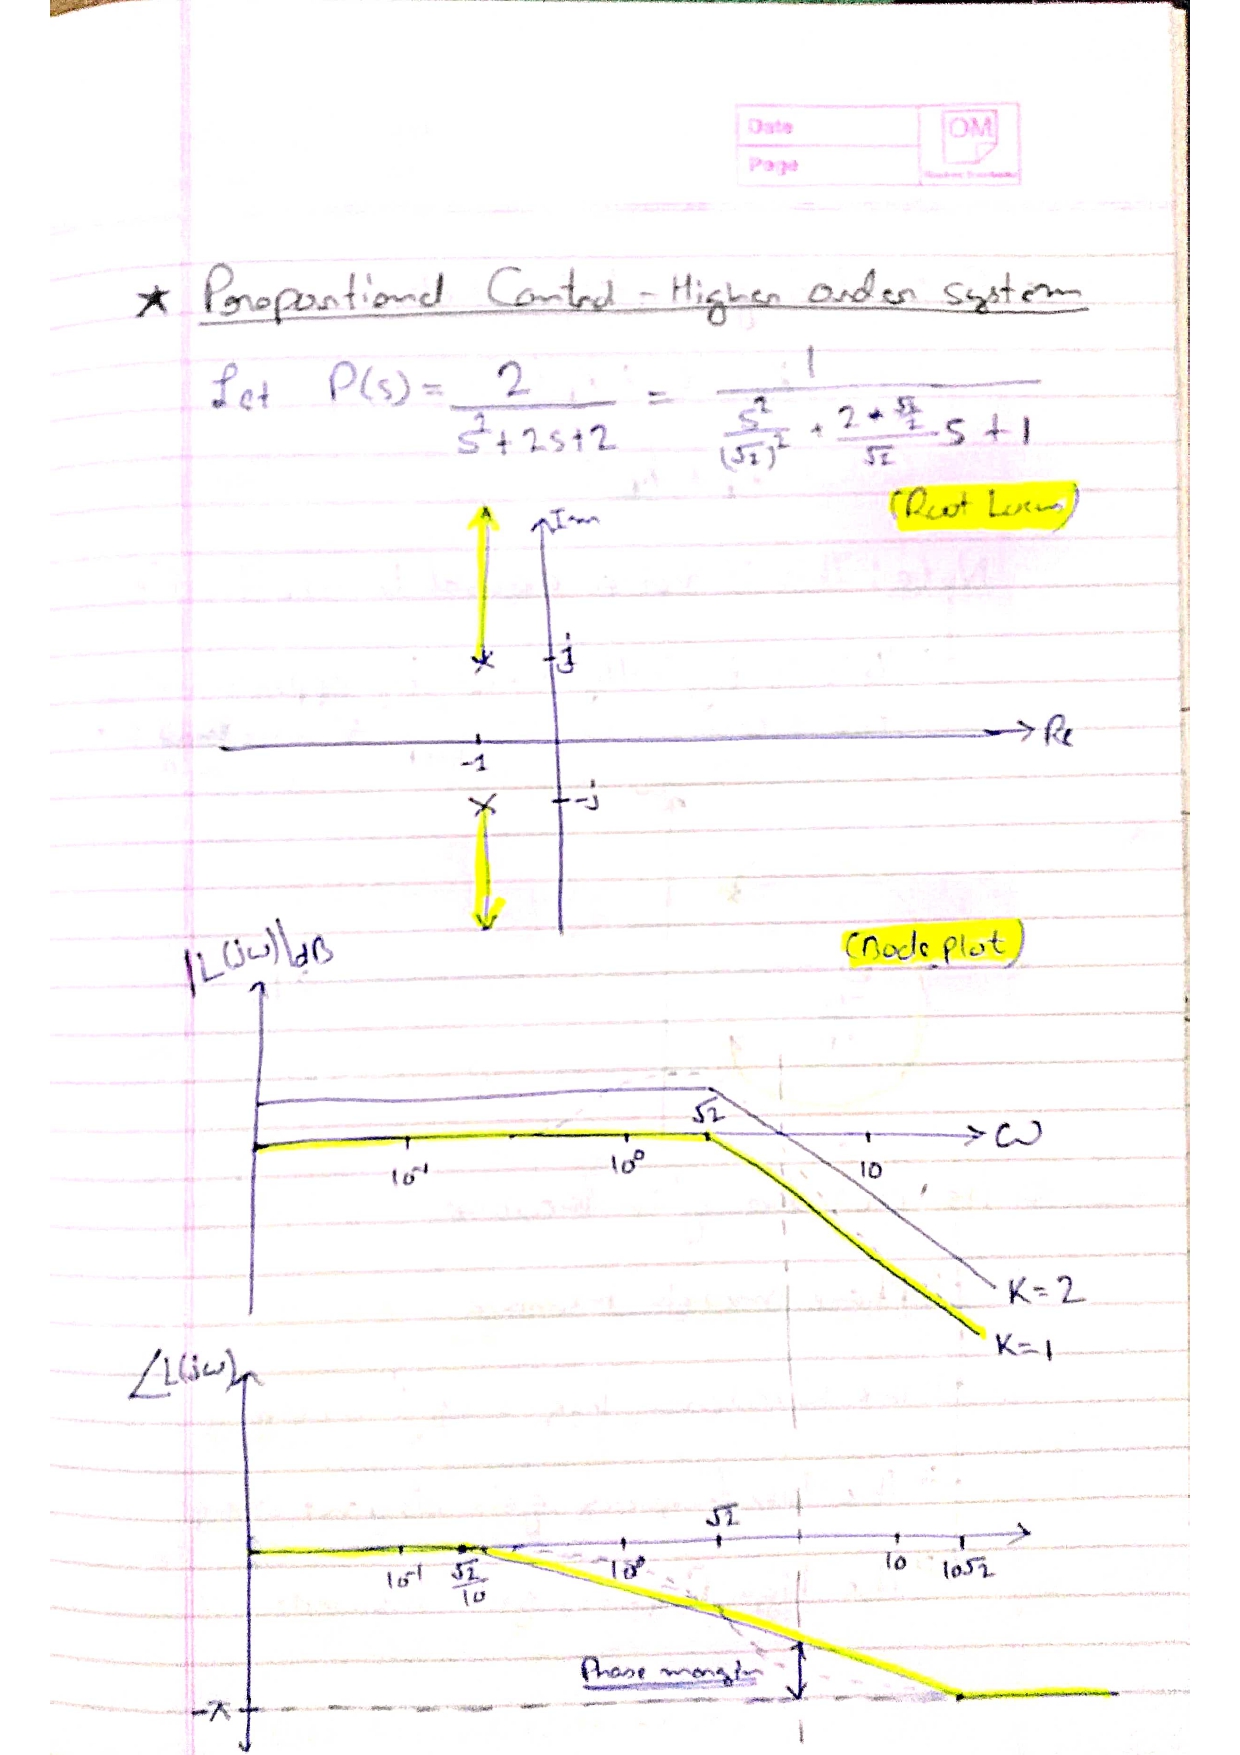 Date
OM
Page
★ Proportional Control - Higher order system
Let P(s) = 2/(s²+2s+2) = 1/(s²/(√2)² + (2*√2/2)/√2 s + 1)
(Root Locus)
Im
j
Re
-1
-j
|L(jω)|dB
(Bode plot)
√2
ω
10⁻¹
10⁰
10
K=2
K=1
∠L(jω)
√2
10⁻¹
√2/10
10⁰
10
10√2
Phase margin
-π